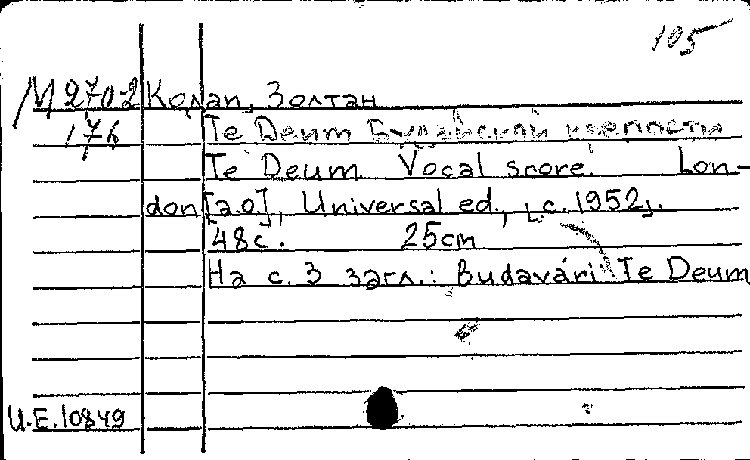 105
М 2702 Кодаи, Золтан
176 Te Deum Будайской крепости
Te Deum Vocal score. Lon-
don [a.o.], Universal ed., [c. 1952].
48 с. 25 cm
На с. 3 загл.: Budavári Te Deum
U.E. 10849